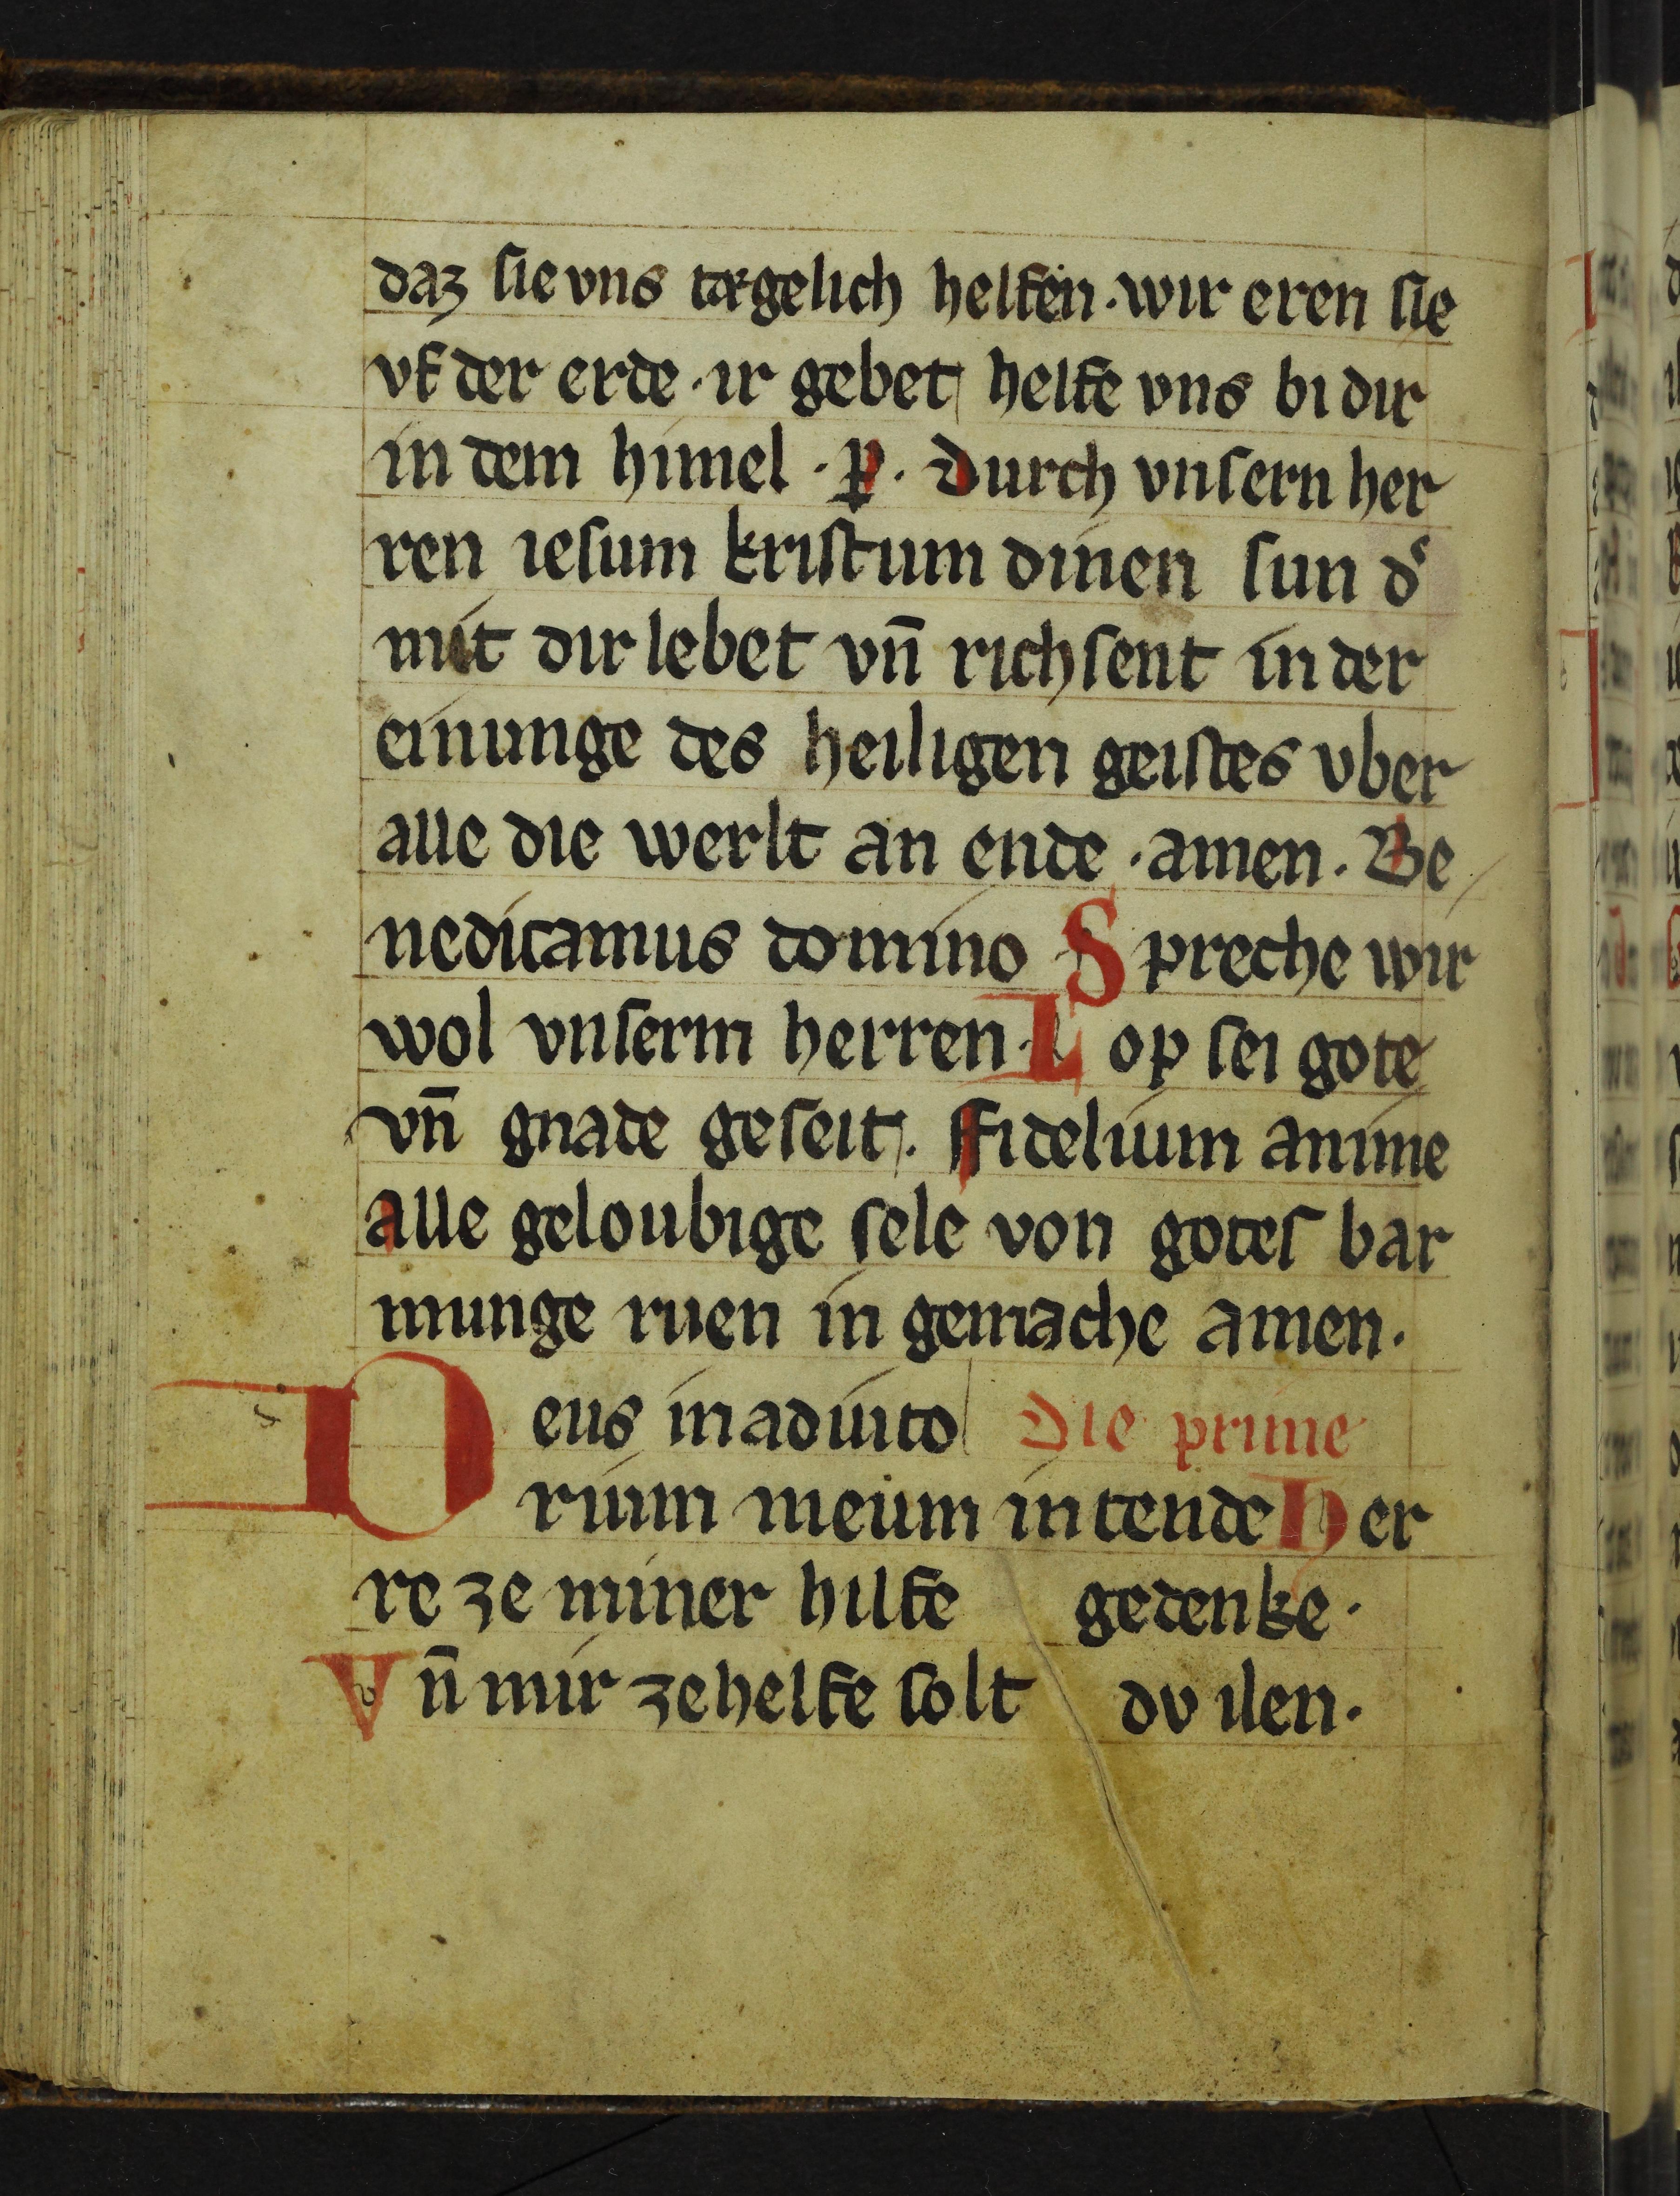 daz sie vns tægelich helfen · wir eren sie
vf der erde · ir gebet helfe vns bi dir
in dem himel · p̲ · durch vnsern her
ren iesum kristum dinen sun dˢ
mit dir lebet vn̄ richsent in der
einunge des heiligen geistes vber
alle die werlt an ende · amen · Be
nedicamus domino · Spreche wir
wol vnserm herren · Lop sei gote
vn̄ gnade geseit · ffidelium anime
alle geloubige sele von gotes bar
munge ruen in gemache amen ·
Deus in adiuto Die prime
rium meum intende Her
re ze miner hilfe gedenke ·
Vn̄ mir ze helfe solt dv ilen ·